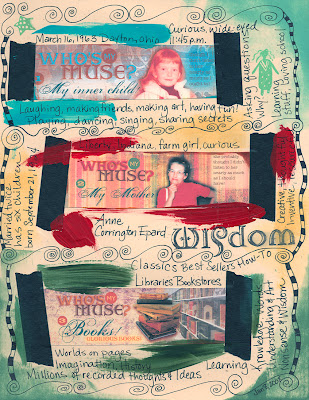 March 16, 1963 Dayton, Ohio
Curious, wide-eyed
11:45 p.m.
WHO'S MY MUSE?
My inner child
Asking questions
Why?
Learning
Loving stuff
Laughing, making friends, making art, having fun!
Playing, dancing, singing, sharing secrets
Liberty, Indiana, farm girl, curious
WHO'S MY MUSE?
My Mother
Married twice
has six children
born September 21, 1924
Creative
Inventive
Anne
Corrington Epard
WISDOM
Classics Best Sellers How-To
Libraries Bookstores
WHO'S MY MUSE?
Books!
GLORIOUS BOOKS!
Knowledge Words
Understanding & Art
Nonsense & Wisdom
Worlds on pages
Imagination, History
Learning
Millions of recorded thoughts & Ideas